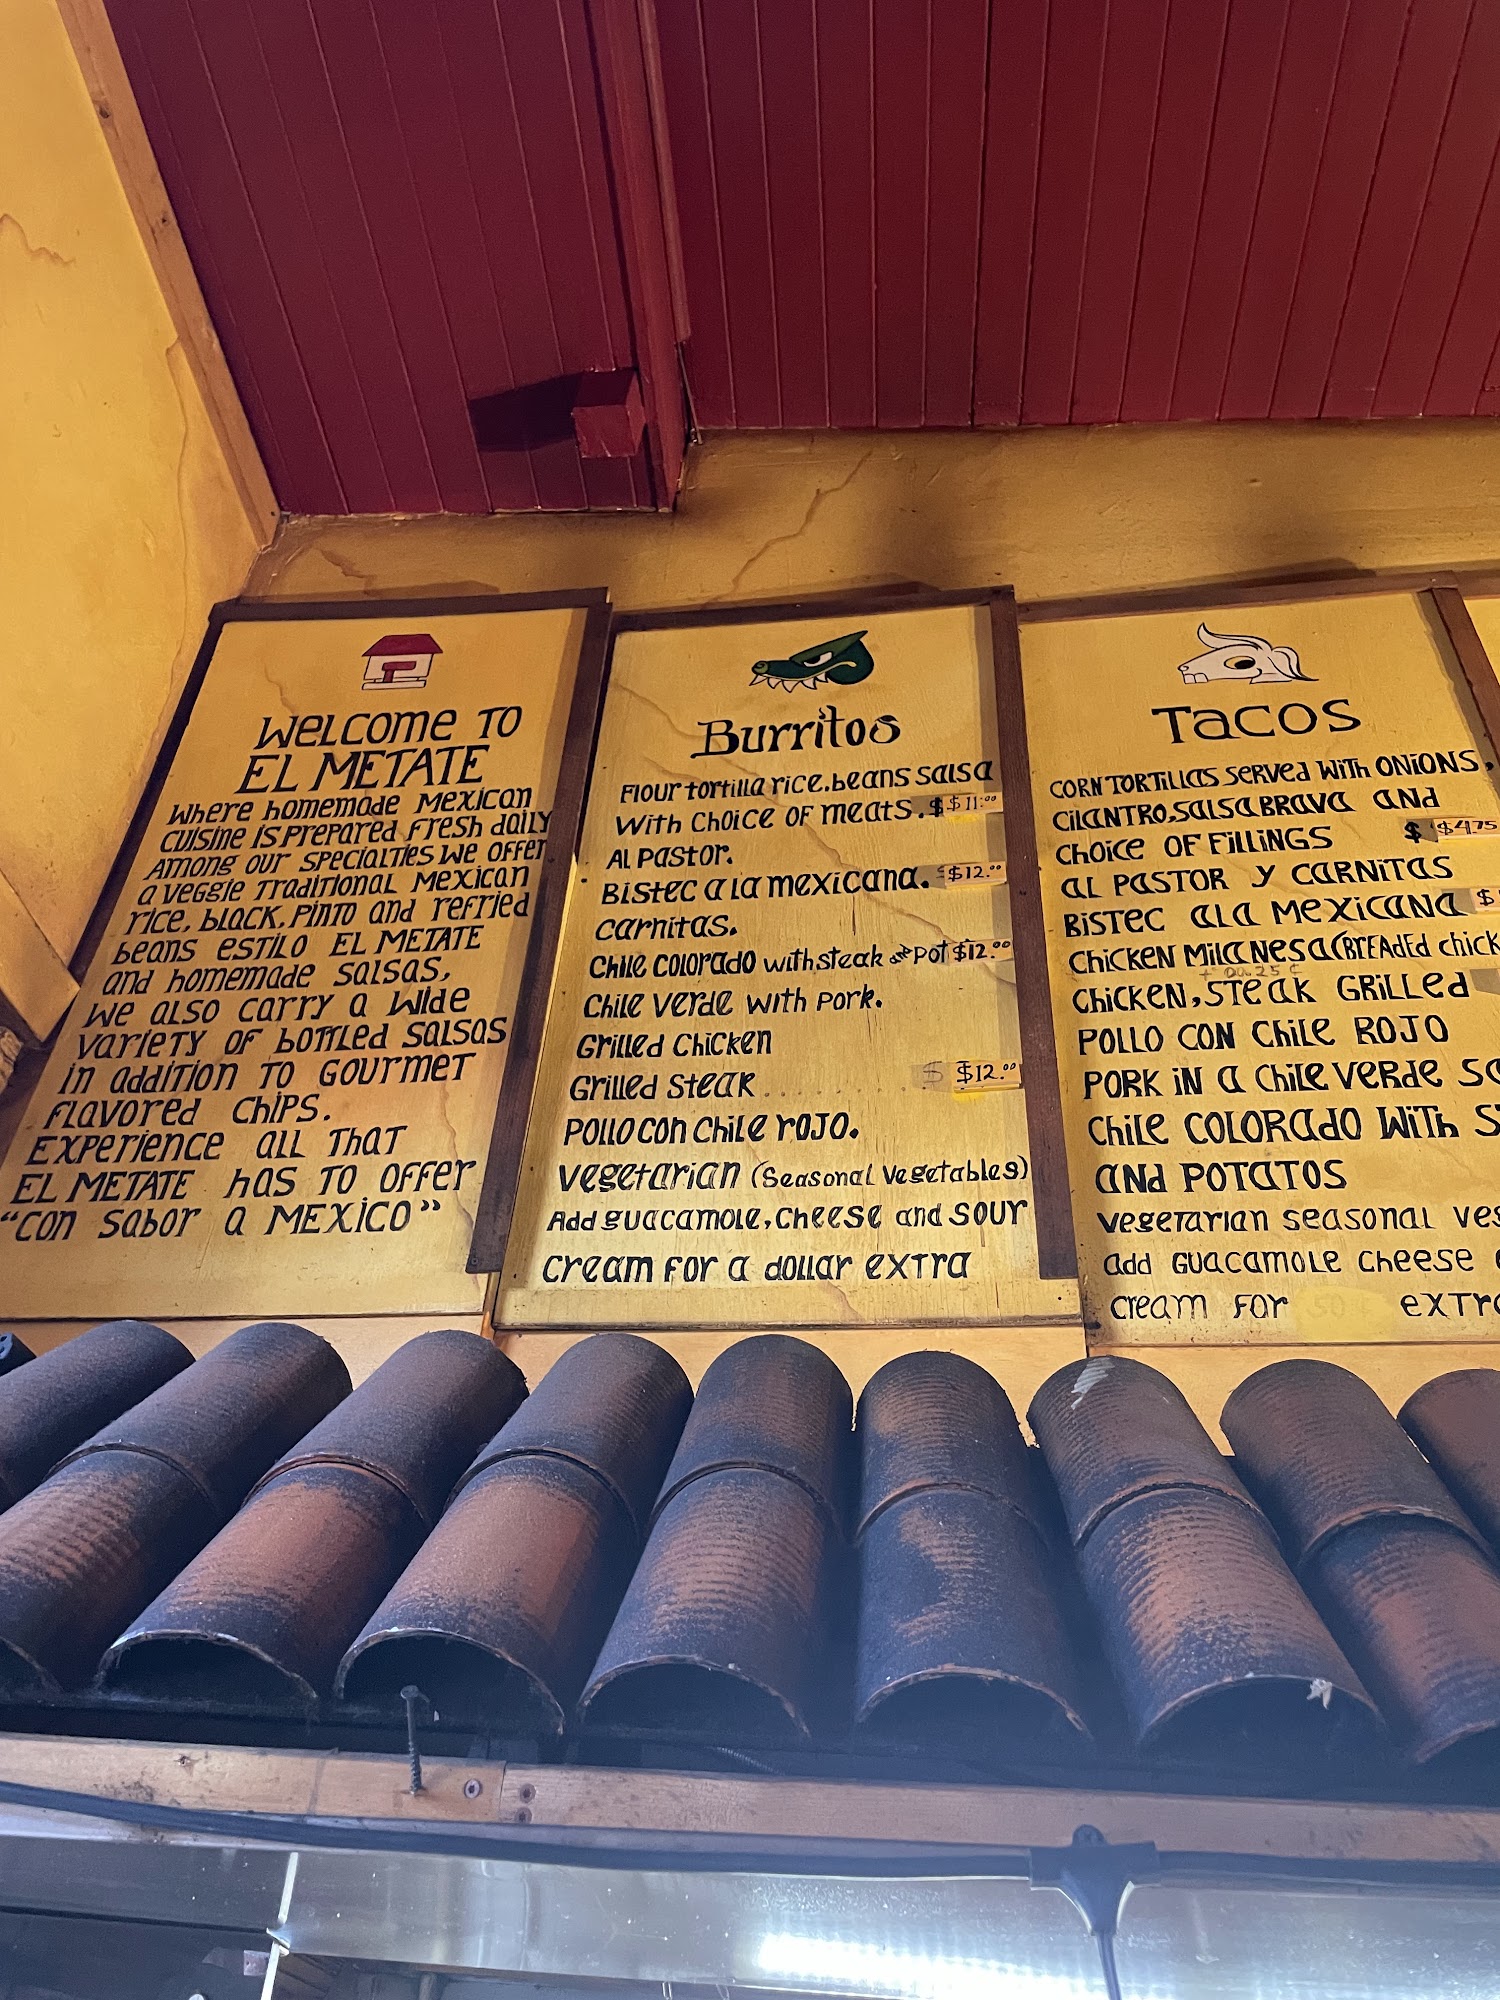 WELCOME TO
EL METATE
Where homemade Mexican
cuisine is prepared fresh daily
Among our specialties we offer
a veggie traditional Mexican
rice, black, pinto and refried
beans estilo EL METATE
and homemade salsas,
we also carry a wide
variety of bottled salsas
in addition to gourmet
flavored chips.
Experience all that
EL METATE has to offer
"con sabor a MEXICO"
Burritos
Flour tortilla rice. beans salsa
With choice of meats. $ $11.00
Al Pastor.
Bistec a la mexicana. $12.00
carnitas.
Chile colorado with steak and pot $12.00
Chile verde with pork.
Grilled Chicken
Grilled Steak $ $12.00
Pollo con chile rojo.
Vegetarian (Seasonal Vegetables)
Add guacamole, cheese and sour
cream for a dollar extra
TACOS
CORN TORTILLAS SERVED WITH ONIONS,
CILANTRO, SALSA BRAVA AND
CHOICE OF FILLINGS $ $4.75
AL PASTOR Y CARNITAS
BISTEC ALA MEXICANA $
CHICKEN MILANESA (BREADED chick
CHICKEN, STEAK GRILLED
POLLO CON CHILE ROJO
PORK IN A CHILE VERDE
CHILE COLORADO WITH
AND POTATOS
VEGETARIAN SEASONAL
add GUACAMOLE CHEESE
cream FOR EXTR